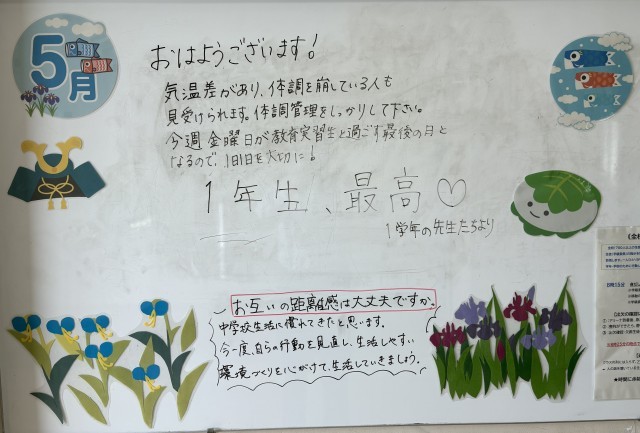 5月
おはようございます!
気温差があり、体調を崩している人も
見受けられます。体調管理をしっかりして下さい。
今週金曜日が教育実習生と過ごす最後の日と
なるので、1日1日を大切に!
1年生、最高♡
1学年の先生たちより
お互いの距離感は大丈夫ですか。
中学校生活に慣れてきたと思います。
今一度、自らの行動を見直し、生活しやすい
環境づくりを心がけて、生活していきましょう。